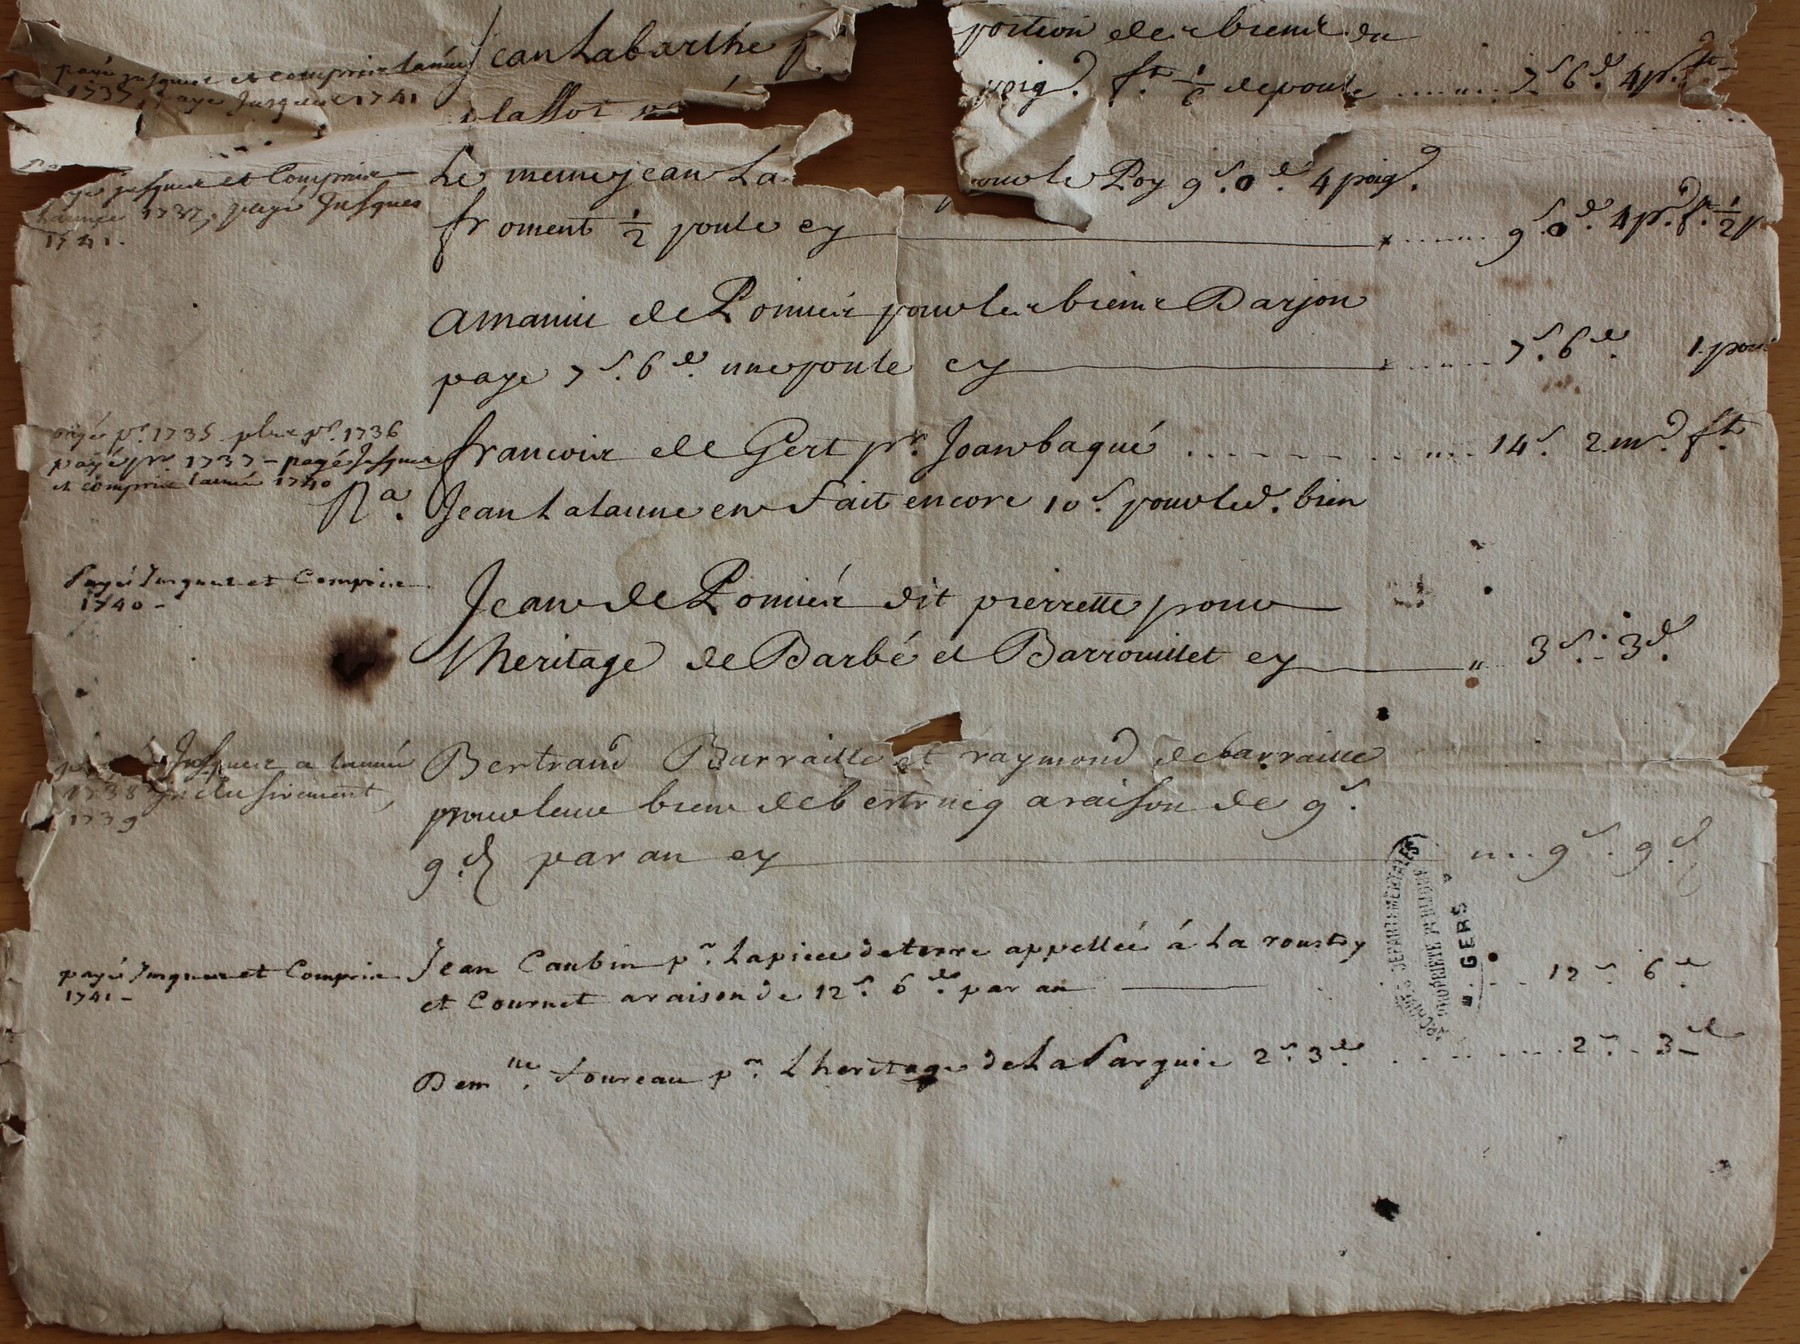 payé jusques et compris lannée
1737 payé Jusques 1741
Jean Labarthe p
portion des biens du
poig.d f.t 1/6 de poule ........ 7 s 6 d 4 p.
jusques et Compris
lannée 1737, payé Jusques
1741.
Le meme jean La
pour le Roy 9 s. 0 d. 4 poig.d
froment 1/2 poule cy ...... 9 s. 0 d. 4 p.d f.t 1/2 p
amaniu de Pomiés pour les biens Darjon
paye 7 s. 6 d. une poule cy ...... 7 s. 6 d. 1 poul
payé p.r 1735 plus p.r 1736
payé pr. 1737 - payé Jusques
et compris lannée 1740
francois de Gert pr. Joanbaqué ........ 14 s. 2 m.d f.t
N.a Jean Lalanne en fait encore 10 s. pour led. bien
Payé Jusques et Compris
1740 -
Jean de Pomiés dit pierrette pour
lheritage de Barbé et Barrouillet cy 3 s. 3 d.
Jusques a lannée
1738 Inclusivement,
1739
Bertrand Barraille et raymond debarraille
pour leur bien de bertrucq a raison de 9 s.
9 d par an cy .... 9 s. 9 d
payé Jusques et Compris
1741 -
Jean Caubin p.r Lapiece de terre appellée á La rousty
et Cournet a raison de 12 s. 6 d. par an ..... 12 s 6 d
Dem.lle foureau p.r Lheritage de La Parguie 2 s. 3 d. ........ 2 s. 3 d
ARCHIVES DEPARTEMENTALES
PROPRIETE PUBLIQUE
GERS